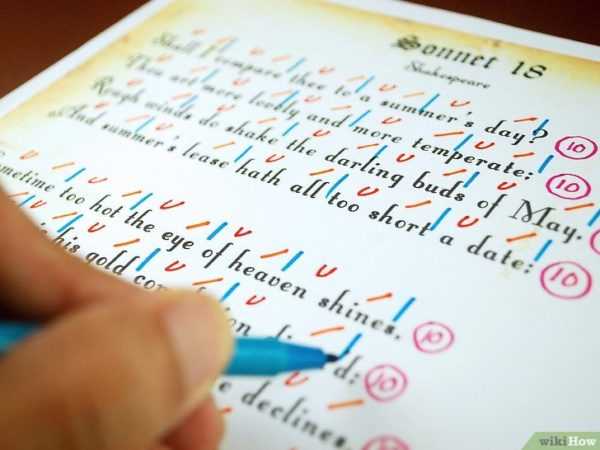 Sonnet 18
Shakespeare
Shall I compare thee to a summer's day? 10
Thou art more lovely and more temperate: 10
Rough winds do shake the darling buds of May,
And summer's lease hath all too short a date: 10
ometime too hot the eye of heaven shines, 10
his gold d: 10
declines, 10
wikiHow